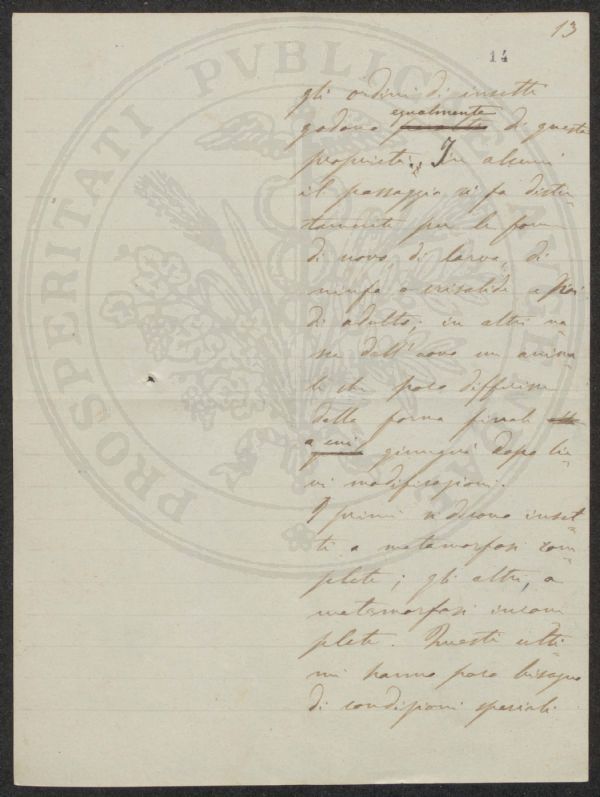 13
14
gli ordini di insetti
egualmente
godono di questa
proprietà. In alcuni
il passaggio si fa distin-
tamente per le forme
di uovo, di larva, di
ninfa o crisalide e poi
di adulto; in altri na-
sce dall'uovo un anima-
le che poco differisce
dalla forma finale
a cui giungerà dopo lie-
vi modificazioni.
I primi si dicono inset-
ti a metamorfosi com-
plete; gli altri, a
metamorfosi incom
plete. Questi ulti-
mi hanno poco bisogno
di condizioni speciali
PROSPERITATI PVBLICAE AVGENDAE